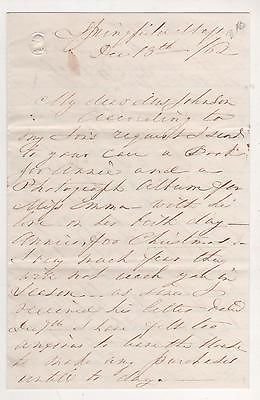 Springfield Mass
Dec 13th /62
My dear Mrs Johnson
According to
my Son's request I send
to your care a Book
for Annie and a
Photograph Album for
Miss Emma with his
love on her birth day
Annie's for Christmas
I very much fear they
will not reach you in
Season as since I
received his letter dated
Dec 7th I have felt too
anxious to leave the House
to make any purchases
until to day.